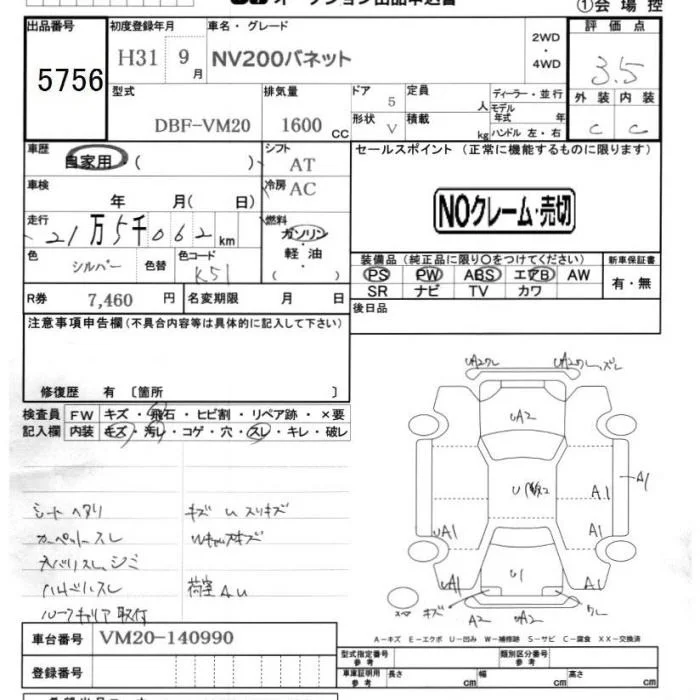 オークション出品申込書
①会場控
出品番号 初度登録年月 車名・グレード 評価点
5756 H31 9月 NV200バネット 2WD・4WD 3.5
型式 排気量 ドア 定員 ディーラー・並行 外装 内装
DBF-VM20 1600cc 5 人 モデル年式 年 C C
形状 V 積載 kg ハンドル 左・右
車歴 自家用・( ) シフト AT セールスポイント (正常に機能するものに限ります)
車検 年 月(日) 冷房 AC
NOクレーム・売切
走行 21万5千062km 燃料 ガソリン・軽油・( )
色 シルバー 色替 色コード K51
装備品 (純正品に限り○をつけてください) 新車保証書
PS PW ABS エアB AW 有・無
SR ナビ TV カワ
R券 7,460円 名変期限 月 日
後日品
注意事項申告欄(不具合内容等は具体的に記入して下さい)
修復歴 有 〔箇所 〕
検査員 FW キズ・飛石・ヒビ割・リペア跡・×要
記入欄 内装 キズ・汚レ・コゲ・穴・スレ・キレ・破レ
シートヘタリ キズ U スリキズ
カーペットスレ
シミ
ハンドルスレ 荷室 4U
ルーフキャリア取付
UA2ワレ
UA2
A1
A1
UA1 UA1
UA1 U1 UA1
キズ A2 UA2 ワレ
A-キズ E-エクボ U-凹み W-補修跡 S-サビ C-腐食 XX-交換済
車台番号 VM20-140990
型式指定番号 参考 類別区分番号 参考
登録番号 車庫証明用 参考 長さ cm 幅 cm 高さ cm